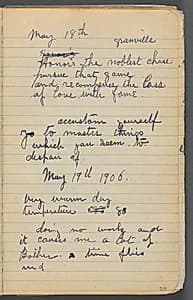 May 18th
granville
Honors the noblest chase
pursue that game
and recompense the loss
of love with fame
accustom yourself
to master things
which you seem to
despair of
May 19th 1906.
very warm day
temperature 80
doing no work and
it causes me a lot of
bother. time flies
and